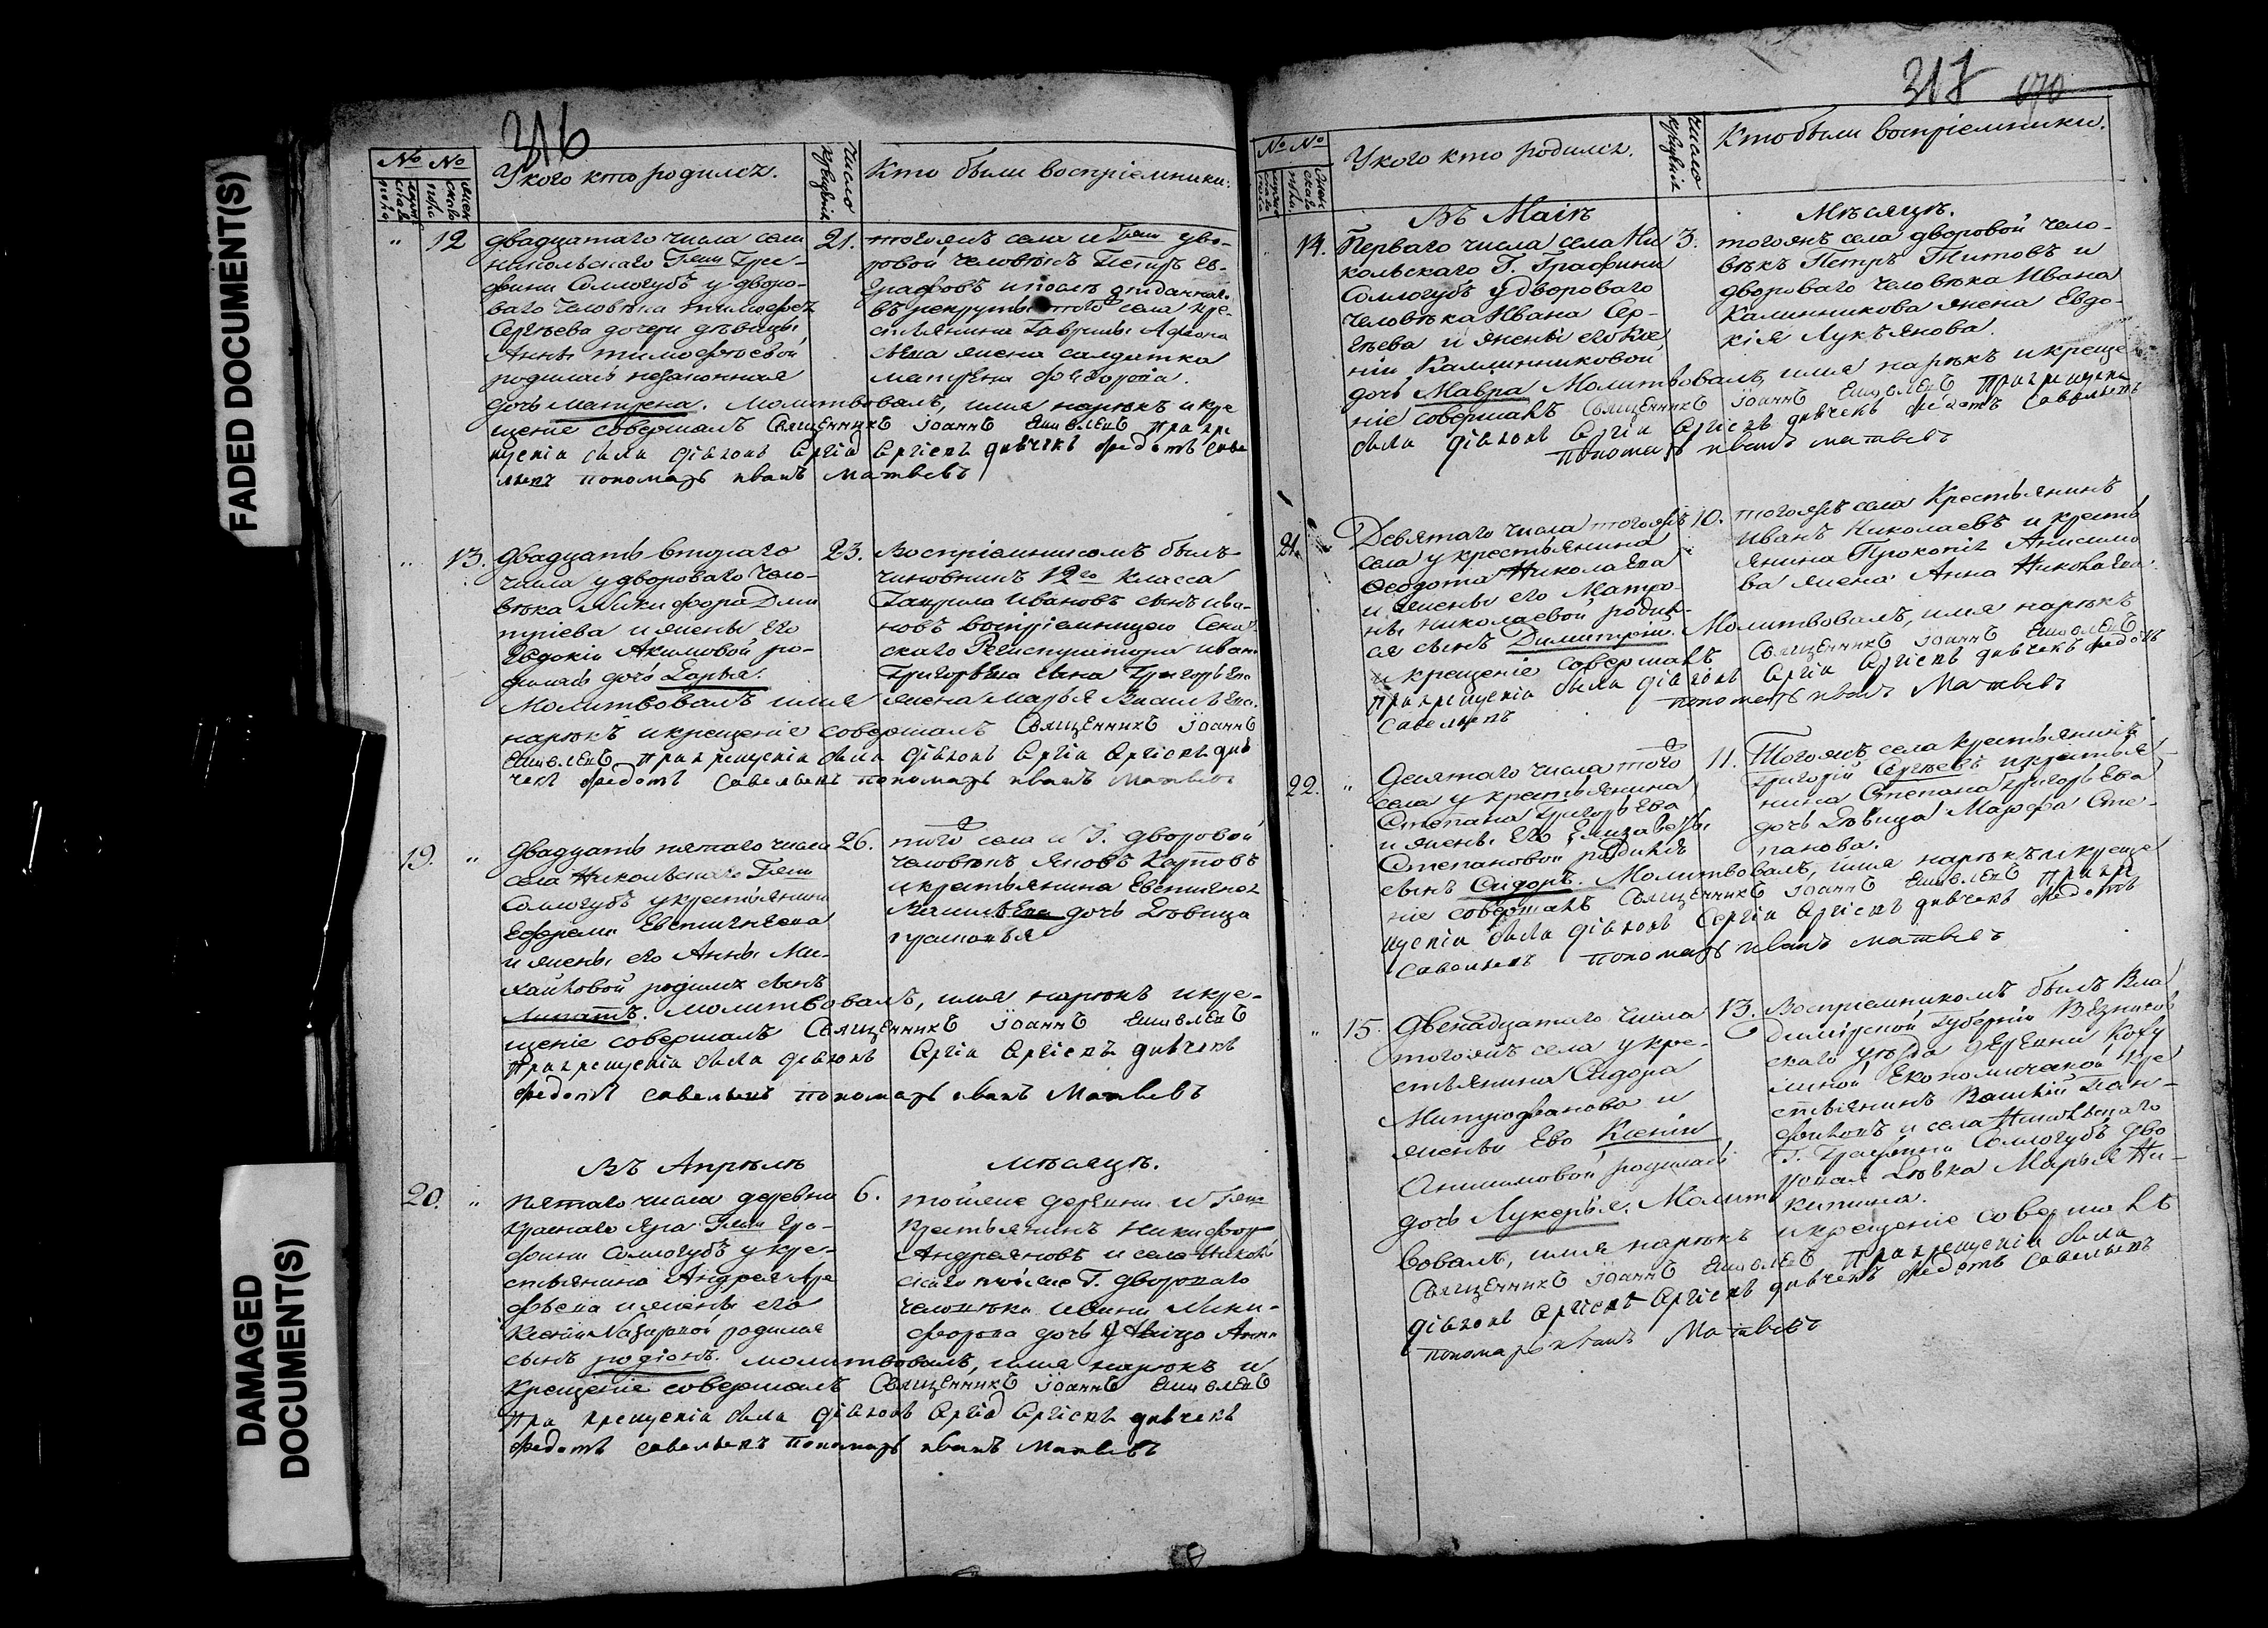 FADED DOCUMENT(S)
DAMAGED
DOCUMENT(S)
316
№ №
У кого кто родился.
Число крещенія
Кто были воспріемники.
12 двадцатаго числа села
никольскаго Гжи Гра-
фини Соллогубъ у дворо-
ваго человѣка тимофея
Сергѣева дочери дѣвицы
Анны тимофѣевой
родилась незаконная
дочь матрена. Молитвовалъ, имя нарѣкъ и кре
щеніе совершалъ Священникъ Іоаннъ При кре
щеніи были діаконъ Сергіи Сергіевъ дьячекъ Федотъ Саве
льевъ пономарь иванъ матвеевъ
21. тогожъ села и Гжи дво-
ровой человѣкъ Петръ Ев-
графовъ и
въ рекруты того села кре-
стьянина Гаврилы
жена салдатка
матрена
13. двадцать втораго
числа у двороваго чело-
вѣка Никифора Дми
тріева и жены его
Евдокіи Акимовой ро-
дилась дочь Дарья.
Молитвовалъ имя
нарѣкъ и крещеніе совершалъ Священникъ Іоаннъ
При крещеніи были діаконъ Сергіи Сергіевъ дья
чекъ Федотъ Савельевъ пономарь иванъ Матвеевъ
23. Воспріемникомъ былъ
чиновникъ 12го класса
Гаврила Ивановъ сынъ ива-
новъ воспріемницею Сена
скаго Регистратора иван
Григорьева сына Григорьева
жена марья Васильева.
19. " двадцать пятаго числа
села Никольскаго Гжи
Соллогубъ у крестьянина
Ефрема Евстигнѣева
и жены его Анны Ми-
хайловой родился сынъ
Липатъ. Молитвовалъ, имя нарѣкъ и кре-
щеніе совершалъ Священникъ Іоаннъ
При крещеніи были діаконъ Сергіи Сергіевъ дьячекъ
Федотъ савельевъ пономарь иванъ Матвеевъ
26. того села и Г. дворовой
человѣкъ Яковъ Карповъ
и крестьянина Евстигнея
Васильева дочь дѣвица
Въ Апрѣлѣ мѣсяцѣ.
20. " пятаго числа деревни
краснаго Яра Гжи Гра-
фини Соллогубъ у кре-
стьянина Андрея Аре
фьева и жены его
Ксеніи Назаровой родился
сынъ родіонъ. молитвовалъ, имя нарѣкъ и
крещеніе совершалъ Священникъ Іоаннъ
При крещеніи были діаконъ Сергіи Сергіевъ дьячекъ
Федотъ савельевъ пономарь иванъ Матвеевъ
6. тойже деревни и Гжи
крестьянинъ Никифоръ
Андреяновъ и села Николь
скаго тойже Г. двороваго
человѣка Ники-
форова дочь дѣвица Анна
317
№ №
У кого кто родился.
Число крещенія
Кто были воспріемники.
Въ Маіѣ Мѣсяцѣ.
14. Перваго числа села Ни
кольскаго Г. Графини
Соллогубъ у двороваго
человѣка Ивана Сер-
гѣева и жены его Ксе
ніи Калинниковой
дочь Мавра Молитвовалъ, имя нарѣкъ и креще
ніе совершалъ Священникъ Іоаннъ При крещеніи
были діаконъ Сергіи Сергіевъ дьячекъ Федотъ Савельевъ
пономарь иванъ матвеевъ
3. тогожъ села дворовой чело-
вѣкъ Петръ Титовъ и
двороваго человѣка Ивана
Калинникова жена Евдо-
кія Лукъянова.
21. " Девятаго числа тогожъ
села у крестьянина
Феодота Николаева
и жены его Матре
ны николаевой родил-
ся сынъ Димитрій. Молитвовалъ, имя нарѣкъ
и крещеніе совершалъ Священникъ Іоаннъ
При крещеніи были діаконъ Сергіи Сергіевъ дьячекъ Федотъ
Савельевъ пономарь иванъ Матвеевъ
10. тогожъ села Крестьянинъ
иванъ Николаевъ и кресть
янина Прокопія Анисимо
ва жена Анна Николаева.
22. " Десятаго числа того
села у крестьянина
Степана Григорьева
и жены его Елизаветы
Степановой родился
сынъ Сидоръ. Молитвовалъ, имя нарѣкъ и креще
ніе совершалъ Священникъ Іоаннъ При кре
щеніи были діаконъ Сергіи Сергіевъ дьячекъ Федотъ
Савельевъ пономарь иванъ матвеевъ
11. Тогожъ села крестьянинъ
григорій Сергѣевъ и крестья-
нина Степана Григорьева
дочь дѣвица Марфа Сте-
панова.
" 15. Двенадцатаго числа
тогожъ села у кре-
стьянина Сидора
Митрофанова и
жены Ево Ксеніи
Анисимовой родилась
дочь Лукерья. Молит
вовалъ, имя нарѣкъ и крещеніе совершалъ
Священникъ Іоаннъ При крещеніи были
діаконъ Сергіевъ дьячекъ Федотъ Савельевъ
пономарь иванъ Матвеевъ
13. Воспріемникомъ былъ Вла
димірской Губерніи Вязников
скаго уѣзда деревни
Економической кре
стьянинъ Василій Пан-
филовъ и села Никольскаго
Г. Графини Соллогубъ дво
ровая дѣвка Марья Ни-
китина.